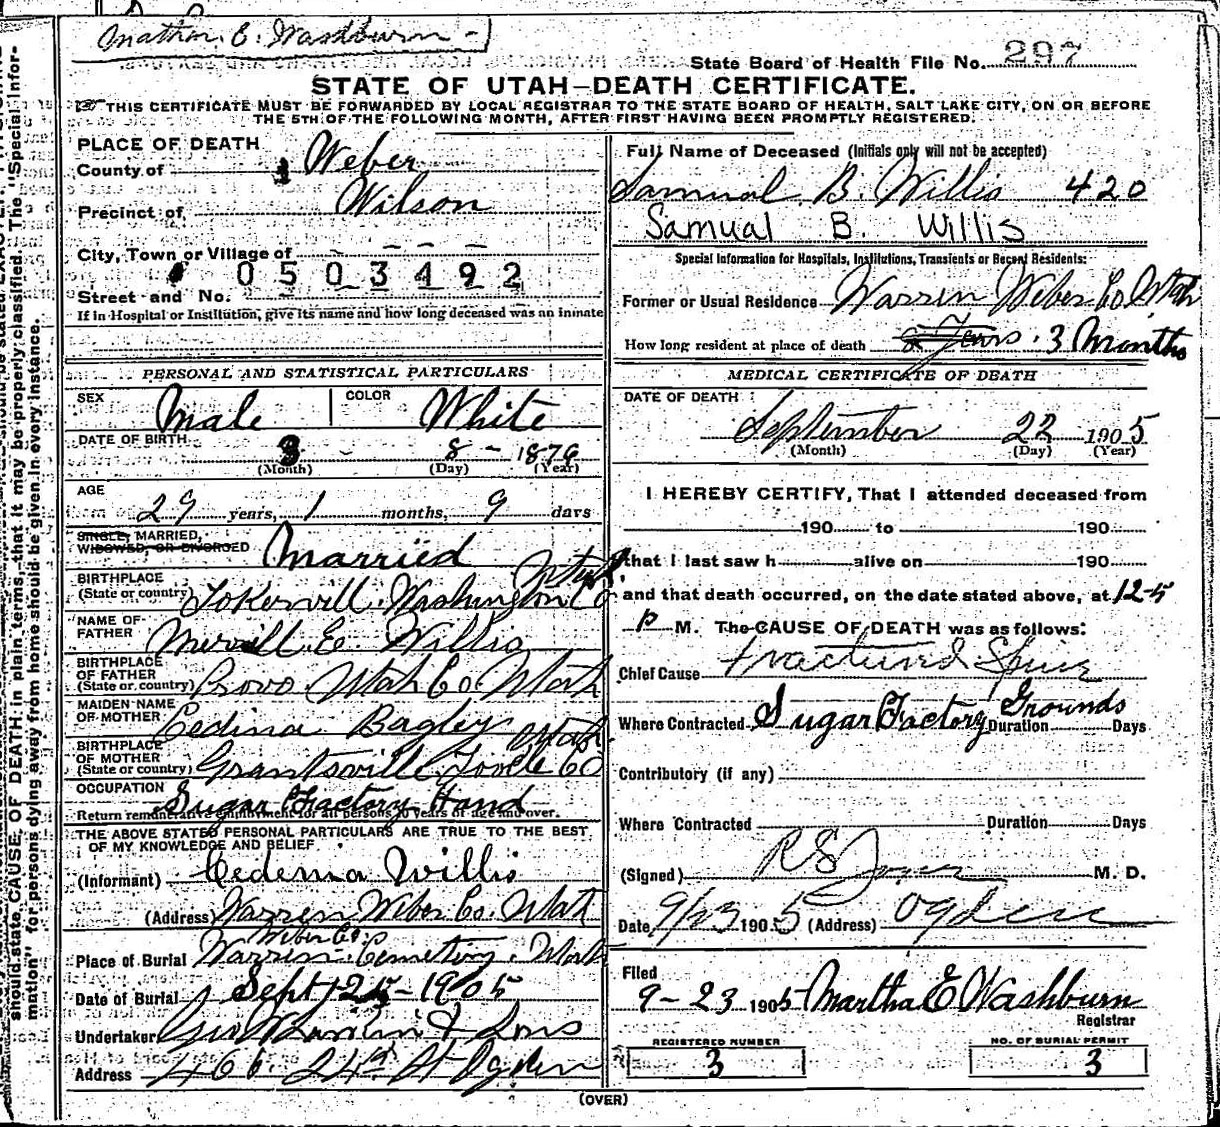 E. Washburn
State Board of Health File No. 297
STATE OF UTAH—DEATH CERTIFICATE.
THIS CERTIFICATE MUST BE FORWARDED BY LOCAL REGISTRAR TO THE STATE BOARD OF HEALTH, SALT LAKE CITY, ON OR BEFORE
THE 5TH OF THE FOLLOWING MONTH, AFTER FIRST HAVING BEEN PROMPTLY REGISTERED.
PLACE OF DEATH
County of Weber
Precinct of Wilson
City, Town or Village of
0503492
Street and No.
If in Hospital or Institution, give its name and how long deceased was an inmate
PERSONAL AND STATISTICAL PARTICULARS
SEX Male COLOR White
DATE OF BIRTH 3 - 8 - 1876
(Month) (Day) (Year)
AGE
29 years, 1 months, 9 days
SINGLE, MARRIED,
WIDOWED, OR DIVORCED Married
BIRTHPLACE
(State or country) Tokervill Washington Co Utah
NAME OF
FATHER Merrill E. Willis
BIRTHPLACE
OF FATHER
(State or country) Provo Utah Co. Utah
MAIDEN NAME
OF MOTHER Cedina Bagley
BIRTHPLACE
OF MOTHER
(State or country) Grantsville Tooele Co Utah
OCCUPATION Sugar Factory Hand
Return remunerative employment for all persons 10 years of age and over.
THE ABOVE STATED PERSONAL PARTICULARS ARE TRUE TO THE BEST
OF MY KNOWLEDGE AND BELIEF
(Informant) Cedema Willis
(Address) Warren Weber Co. Utah
Weber Co.
Place of Burial Warren Cemetery, Utah
Date of Burial Sept 25 - 1905
Undertaker & Sons
Address 466 24th St Ogden
Full Name of Deceased (Initials only will not be accepted)
Samual B. Willis 420
Samual B. Willis
Special Information for Hospitals, Institutions, Transients or Recent Residents:
Former or Usual Residence Warren Weber Co Utah
How long resident at place of death Years. 3 Months
MEDICAL CERTIFICATE OF DEATH
DATE OF DEATH
September 22 1905
(Month) (Day) (Year)
I HEREBY CERTIFY, That I attended deceased from
190 to 190
that I last saw h alive on 190
and that death occurred, on the date stated above, at 12-5
p M. The CAUSE OF DEATH was as follows:
Chief Cause Fractured Spine
Where Contracted Sugar Factory Grounds Duration Days
Contributory (if any)
Where Contracted Duration Days
(Signed) R S M. D.
Date 9/23 1905 (Address) Ogden
Filed
9-23 1905 Martha E Washburn
Registrar
REGISTERED NUMBER
3
NO. OF BURIAL PERMIT
3
(OVER)
should state CAUSE OF DEATH in plain terms, that it may be properly classified. The "Special Infor-
mation" for persons dying away from home should be given in every instance.